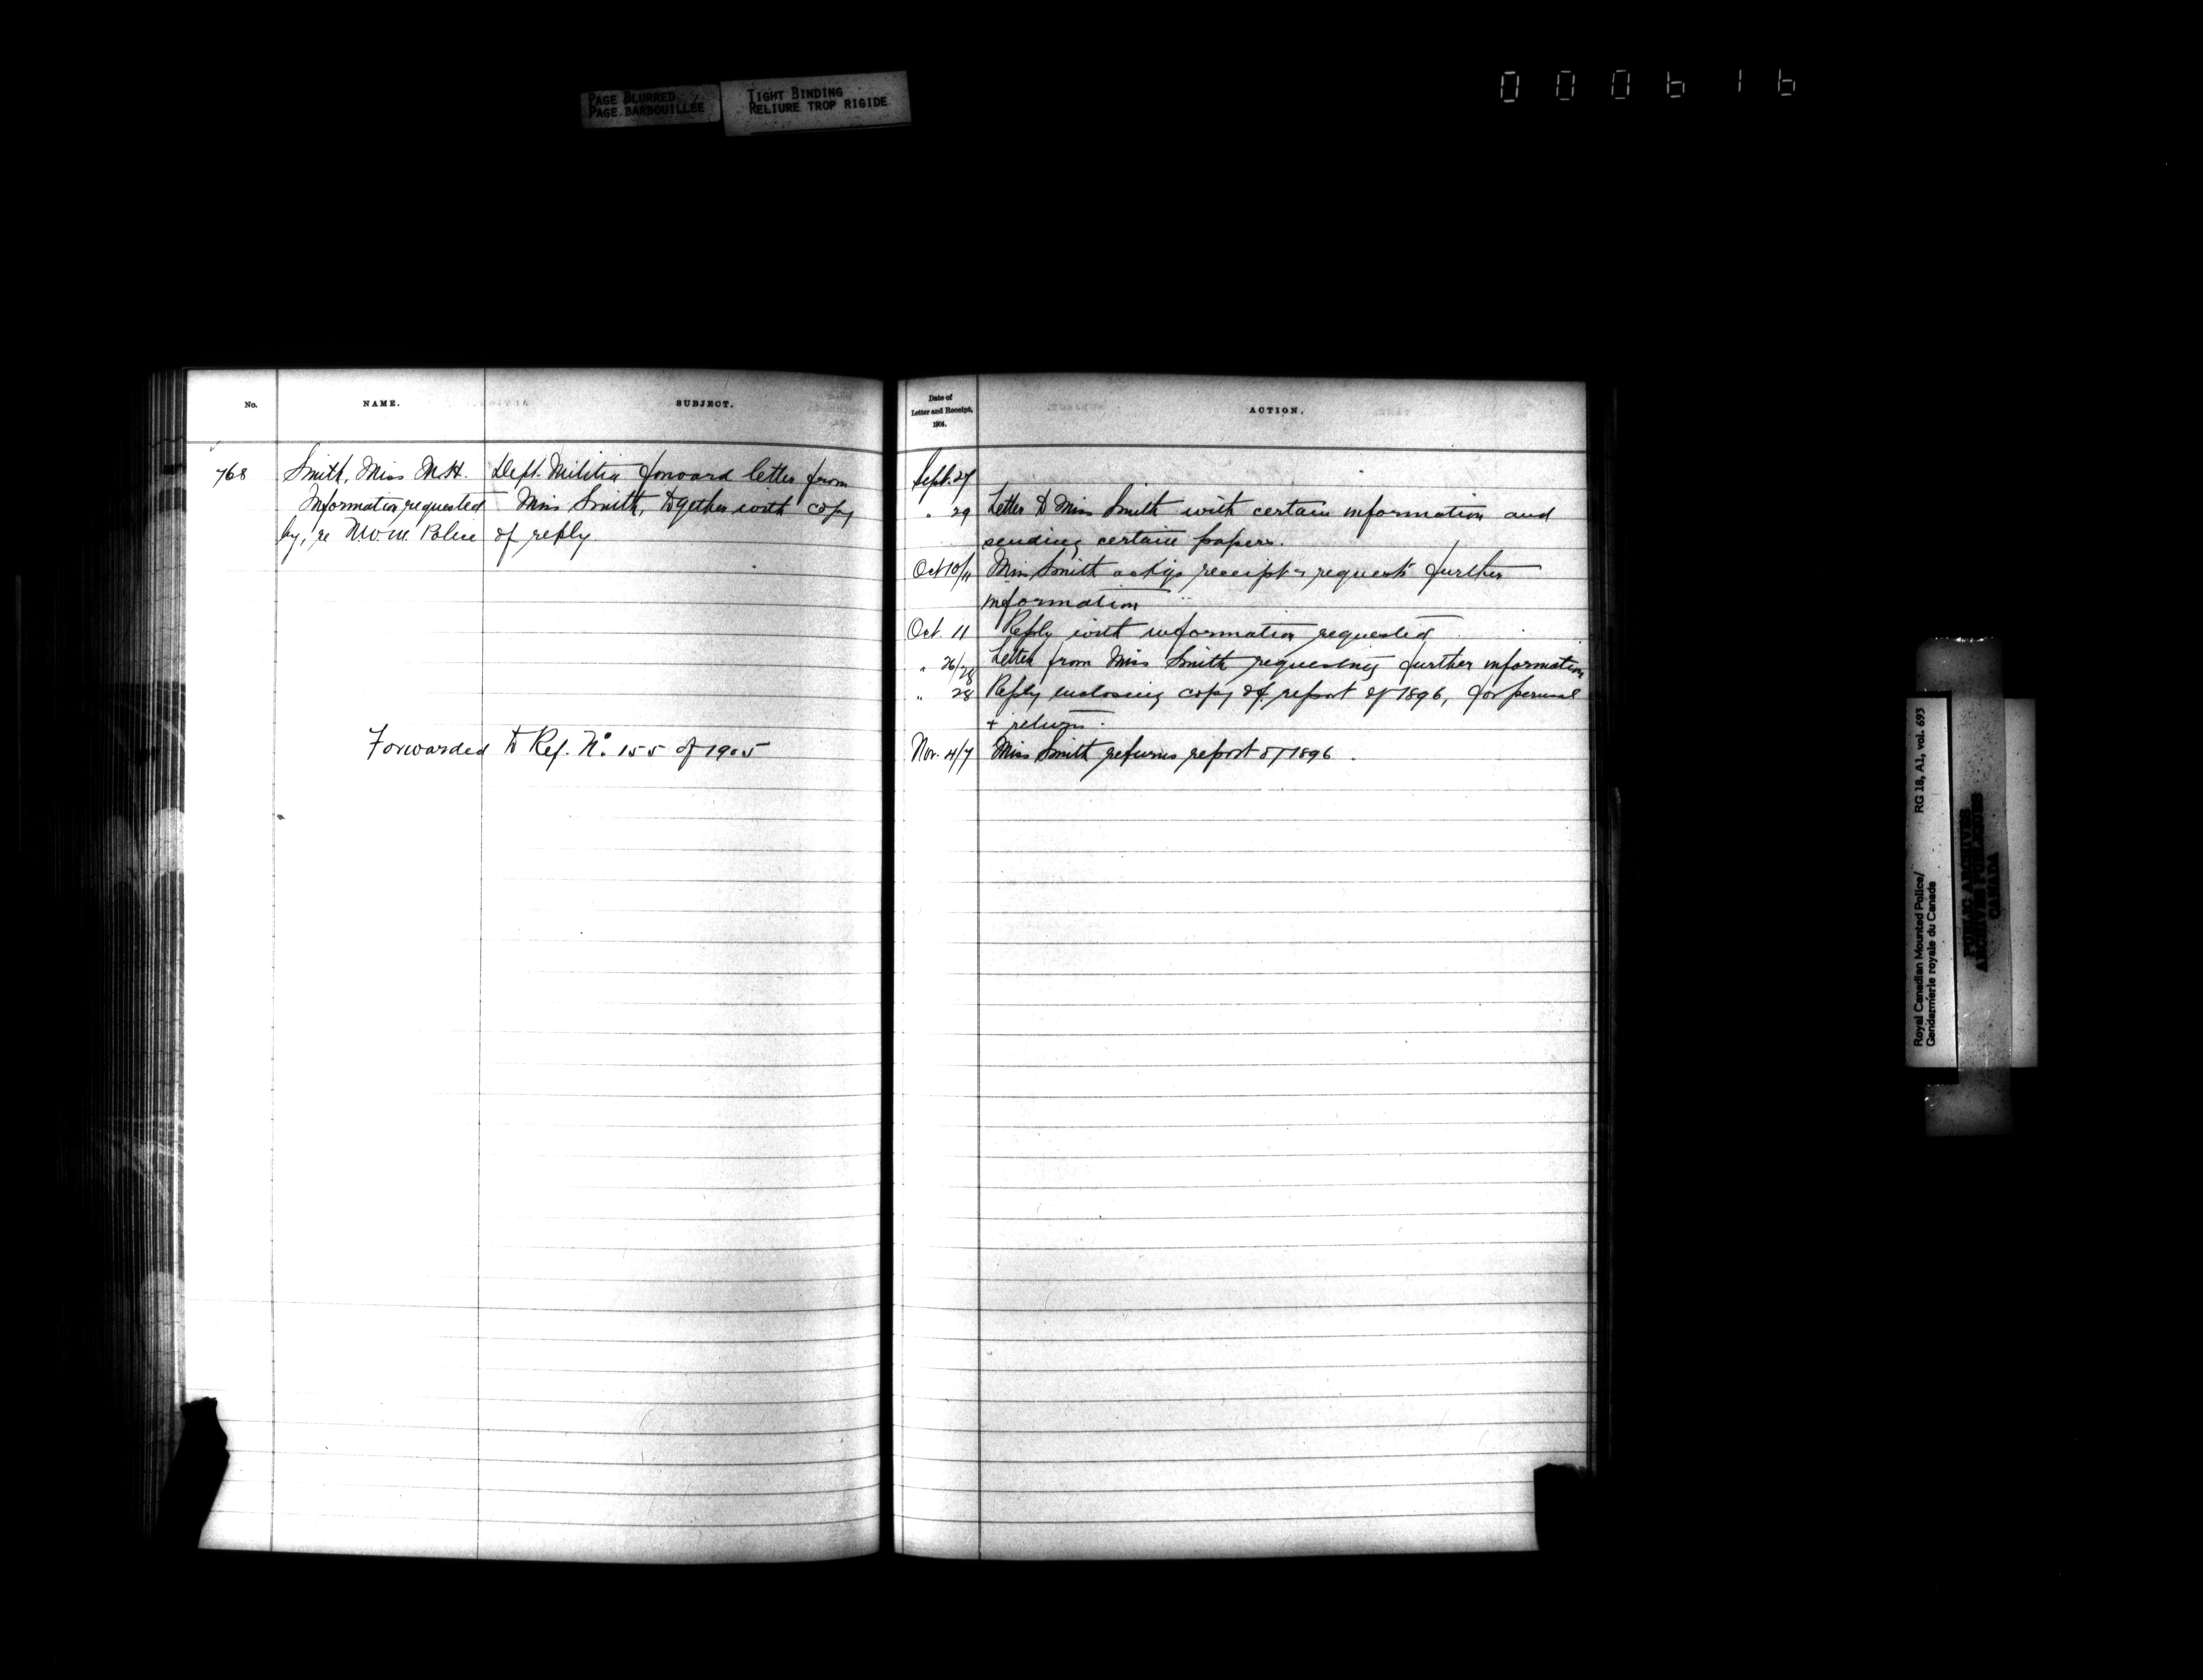 PAGE BLURRED
PAGE BARBOUILLÉE
TIGHT BINDING
RELIURE TROP RIGIDE
000616
No.
NAME.
SUBJECT.
768
Smith, Miss M.H.
Information requested
by, re N.W.M. Police
Dept. Militia forward letter from
Miss Smith, together with copy
of reply
Forwarded to Ref. No. 155 of 1905
Date of
Letter and Receipt,
1904.
ACTION.
Sept. 27
" 29 Letter to Miss Smith with certain information and
sending certain papers.
Oct 10/11 Miss Smith ackgs receipt & requests further
information
Oct. 11 Reply with information requested
" 26/28 Letter from Miss Smith requesting further information
" 28 Reply enclosing copy of report of 1896, for perusal
+ return.
Nov. 4/7 Miss Smith returns report of 1896.
Royal Canadian Mounted Police/ RG 18, A1, vol. 693
Gendarmerie royale du Canada
PUBLIC ARCHIVES
ARCHIVES PUBLIQUES
CANADA